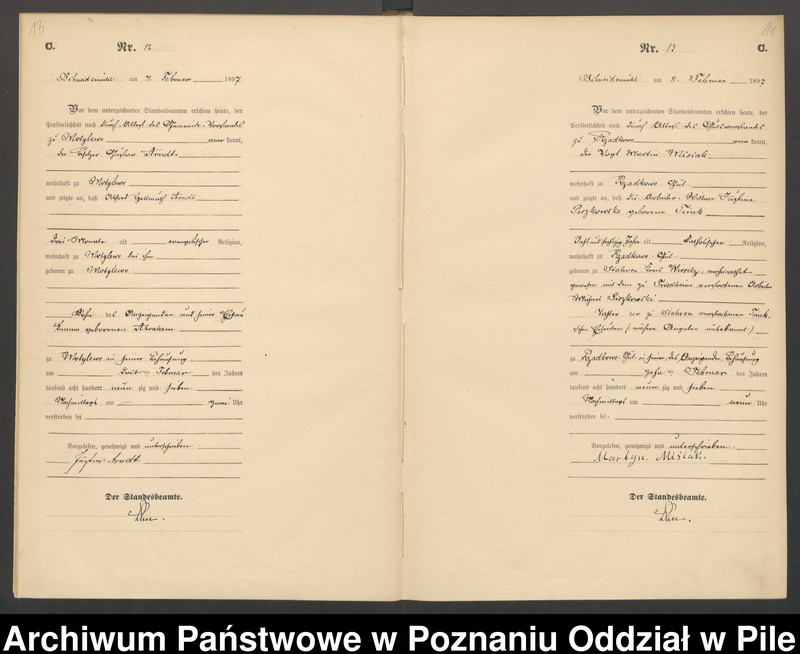 13
C. Nr. 12.
Schneidemühl am 4. Februar 1897
Vor dem unterzeichneten Standesbeamten erschien heute, der
Persönlichkeit nach durch Attest des Gemeinde-Vorstandes
zu Motylewo kannt,
der Besitzer Gustav Arndt
wohnhaft zu Motylewo
und zeigte an, daß Alfred Hellmuth Arndt
drei Monate alt evangelischer Religion,
wohnhaft zu Motylewo bei ihm
geboren zu Motylewo
Sohn des Anzeigenden und seiner Ehefrau
Emma geborenen Abraham
zu Motylewo in seiner Behausung
am drei Februar des Jahres
tausend acht hundert neunzig und sieben
Nachmittags um zwei Uhr
verstorben sei
Vorgelesen, genehmigt und unterschrieben
Arndt
Der Standesbeamte.
14
Nr. 13 C.
Schneidemühl am 11. Februar 1897
Vor dem unterzeichneten Standesbeamten erschien heute, der
Persönlichkeit nach durch Attest des Gutsvorstandes
zu Rzadkowo kannt,
der Vogt Martin Misiak
wohnhaft zu Rzadkowo-Gut
und zeigte an, daß die Arbeiter-Wittwe
geborene
Jahre alt katholischer Religion,
wohnhaft zu Rzadkowo-Gut
geboren zu Stahren Kreis Wirsitz, verheirathet
gewesen mit dem zu Friedheim verstorbenen Arbeiter
Michael
Tochter der zu Stahren verstorbenen
Eheleute (nähere Angaben unbekannt)
zu Rzadkowo-Gut in seiner, des Anzeigenden, Behausung
am zehn Februar des Jahres
tausend acht hundert neunzig und sieben
Nachmittags um neun Uhr
verstorben sei.
Vorgelesen, genehmigt und unterschrieben.
Martyn. Misiak.
Der Standesbeamte.
Archiwum Państwowe w Poznaniu Oddział w Pile